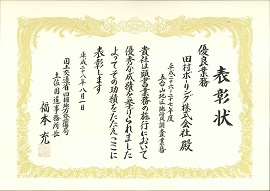 表彰状
優良業務
田村ボーリング株式会社殿
平成二十六-二十七年度
五台山地区地質調査業務
貴社は頭書業務の施行において
優秀な成績を挙げられました
よってその功績をたたえここに
表彰します
平成二十八年八月一日
国土交通省四国地方整備局
土佐国道事務所長
福本 充